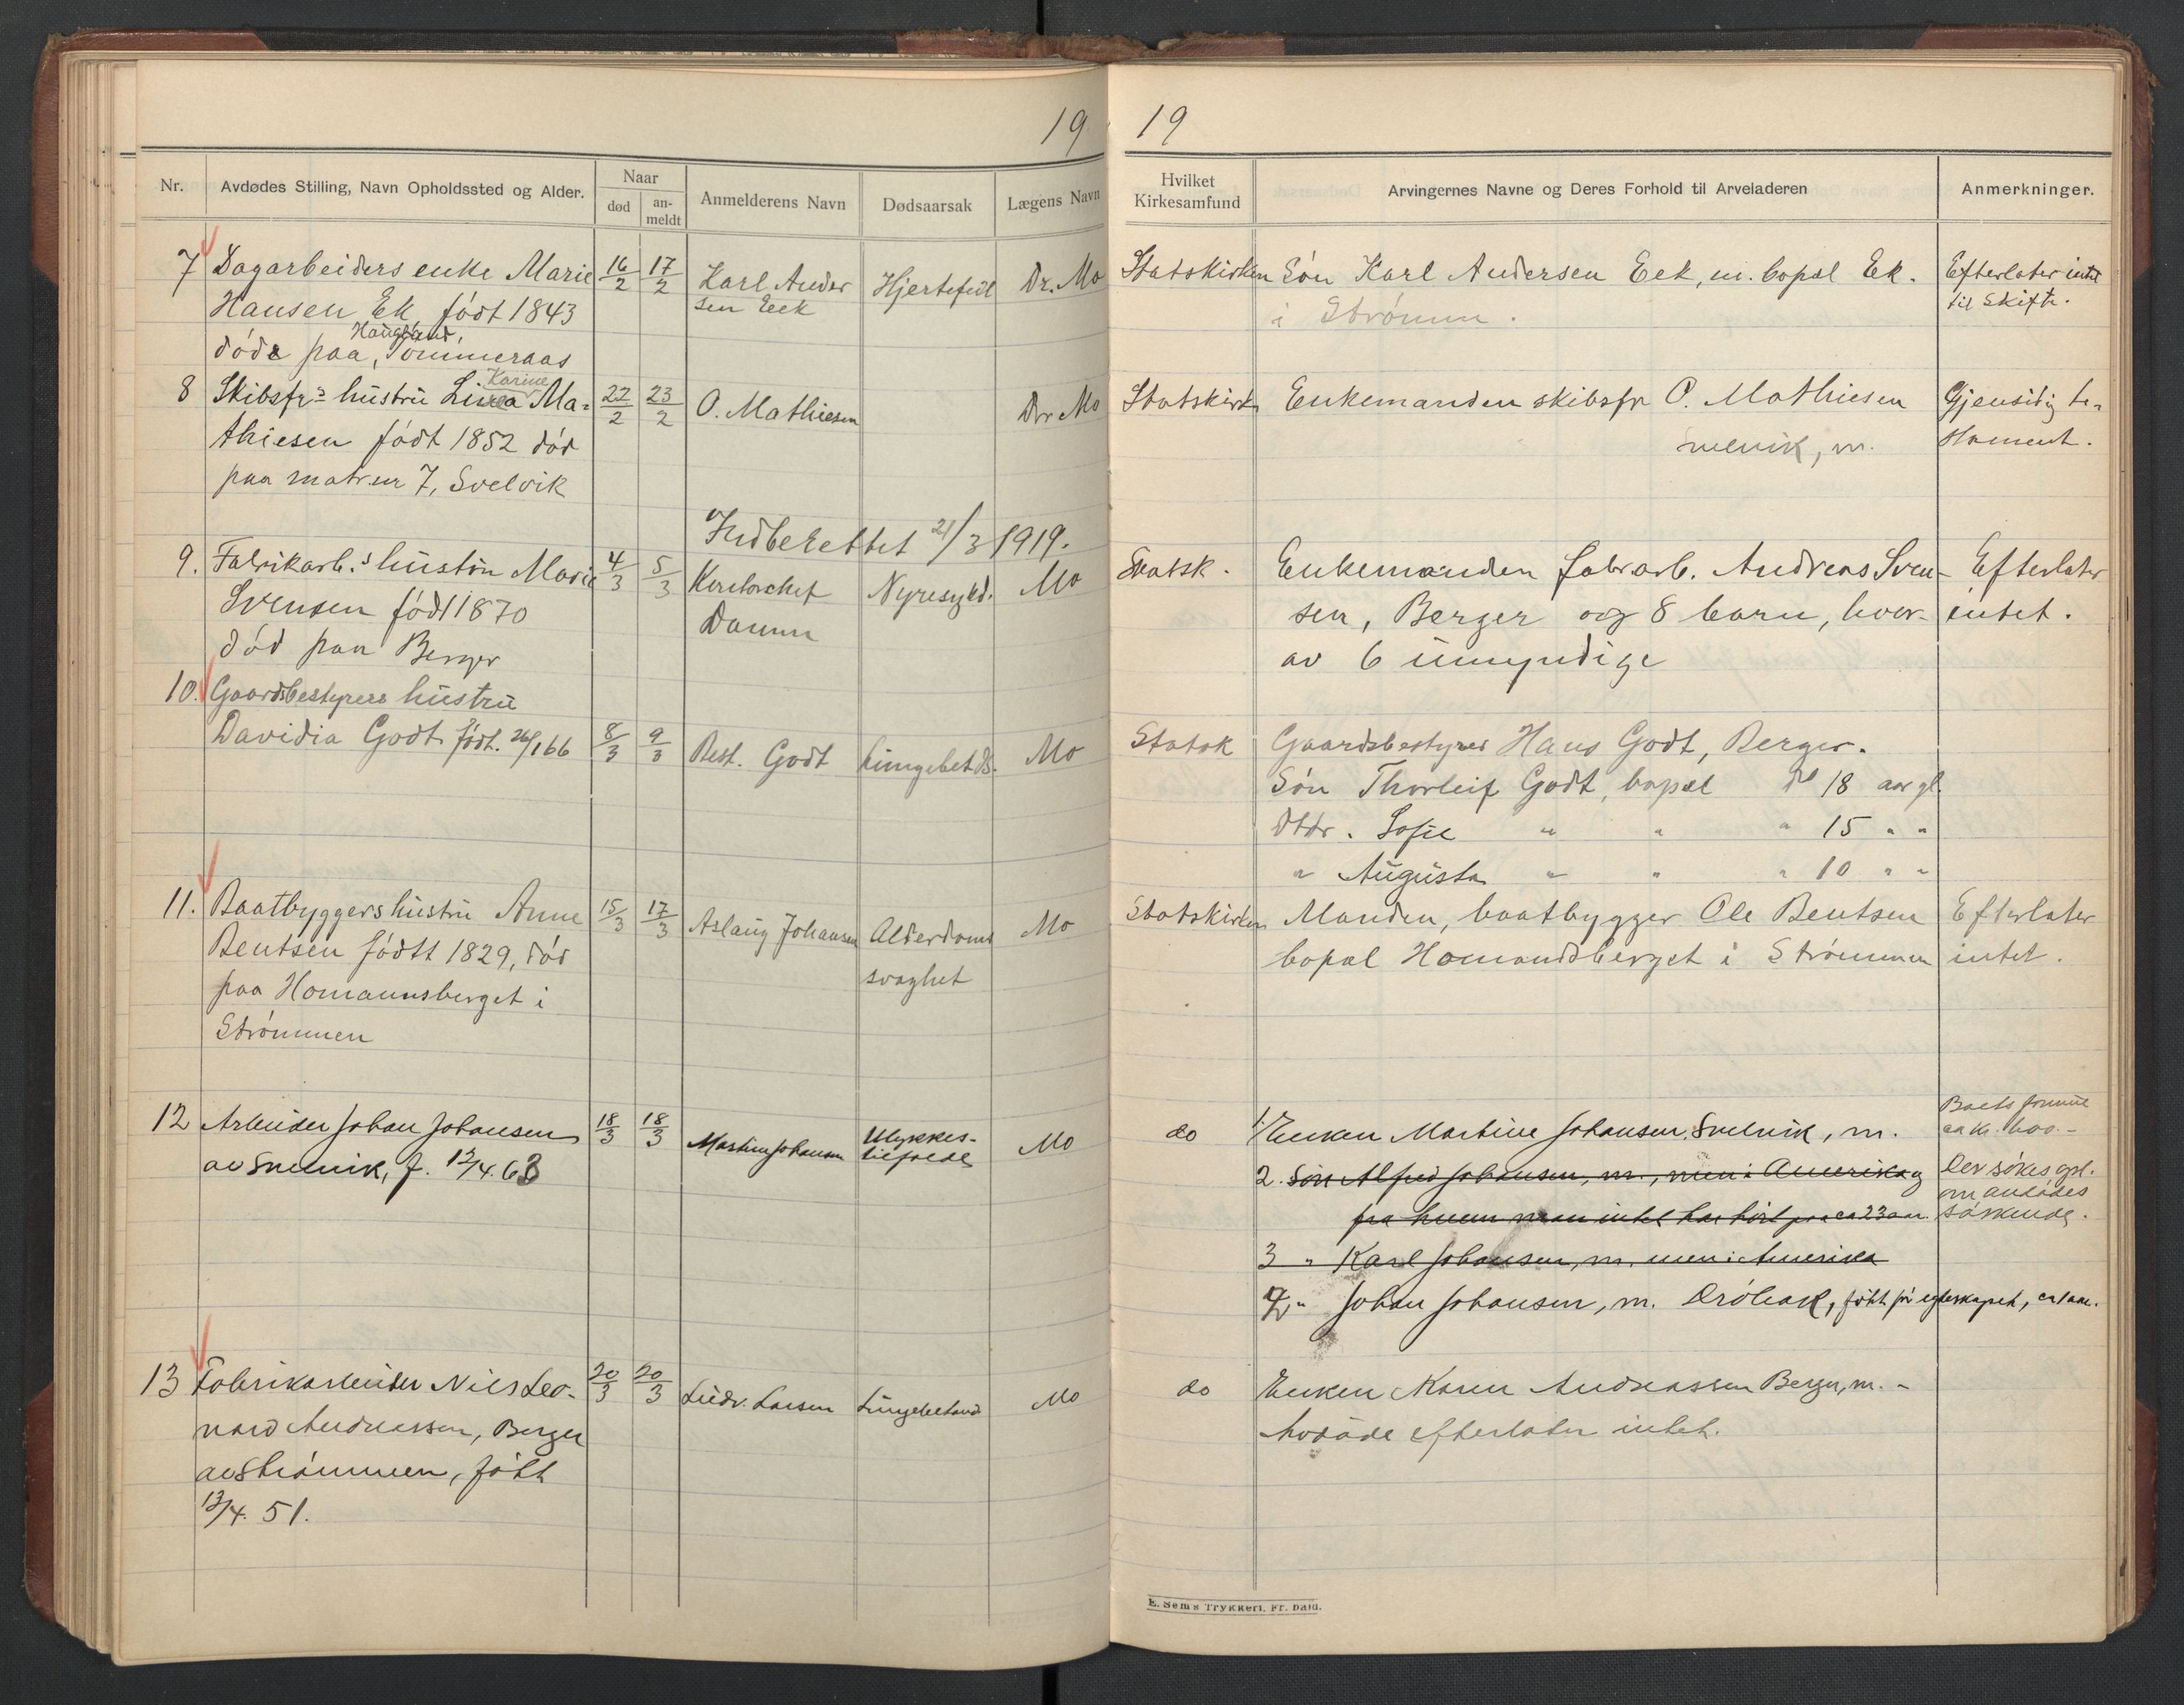 19
Nr.
Avdødes Stilling, Navn Opholdssted og Alder.
Naar
død
an-
meldt
Anmelderens Navn
Dødsaarsak
Lægens Navn
7 Dagarbeiders enke Marie 16/2 17/2 Karl Ander Hjertefeil Dr. Mo
Hansen Ek, født 1843 sen Eek
Haugland,
døde paa, Tømmeraas
Karine
8 Skibsfr's hustru Lina Ma- 22/2 23/2 O. Mathiesen Dr Mo
thiesen født 1852 død
paa matr.nr 7, Svelvik
Indberettet 21/3 1919.
9. Fabrikarb.s hustru Marie 4/3 5/3 Kontorchef Nyresygd. Mo
Svensen født 1870 Damm
død paa Berger
10. Gaardsbestyrers hustru
Davidia Godt født. 26/1 66 8/3 9/3 Best. Godt Lungebet ds. Mo
11. Baatbyggers hustru Anne 15/3 17/3 Aslaug Johansen Alderdoms Mo
Bentsen født 1829, død svaghet
paa Homannsberget i
Strømmen
12 Arbeider Johan Johansen 18/3 18/3 Martin Johansen Ulykkes- Mo
av Svelvik, f. 12/4. 63 tilfælde
13 Fabrikarbeider Nils Leo- 20/3 20/3 Ludv. Larsen Lungebetænd Mo
nard Andreassen, Berger
av Strømmen, født
12/4. 51.
19
Hvilket
Kirkesamfund
Arvingernes Navne og Deres Forhold til Arveladeren
Anmerkninger.
Statskirken Søn Karl Andersen Eek, m. bopæl Ek. Efterlater intet
i Strømm. til skifte.
Statskirk Enkemanden skibsfr O. Mathiesen Gjensidig te-
svelvik, m. stament.
Statsk. Enkemanden fabrarb. Andreas Sven- Efterlater
sen, Berger og 8 barn, hvor- intet.
av 6 umyndige
Statsk Gaardsbestyrer Hans Godt, Berger.
Søn Thorleif Godt, bopæl 18 aar gl.
Dtdr. Sofie " " " 15 " "
" Augusta " " " 10 " "
Statskirken Manden, baatbygger Ole Bentsen Efterlater
bopæl Homandsberget i Strømmen intet.
do 1. Enken Martine Johansen, Svelvik, m.
2. Søn Alfred Johansen, m., men i Amerika og
fra hvem man intet har hørt paa ca 23 aar.
3 " Karl Johansen, m. men i Amerika
" Johan Johansen, m. Drøbak, født før egteskapet,
Boets formue
ca kr.
Der søkes opl.
om avdødes
søskende.
do Enken Karen Andreassen Berger, m. -
Avdøde efterlater intet.
E. Sem's Trykkeri, Fr.hald.